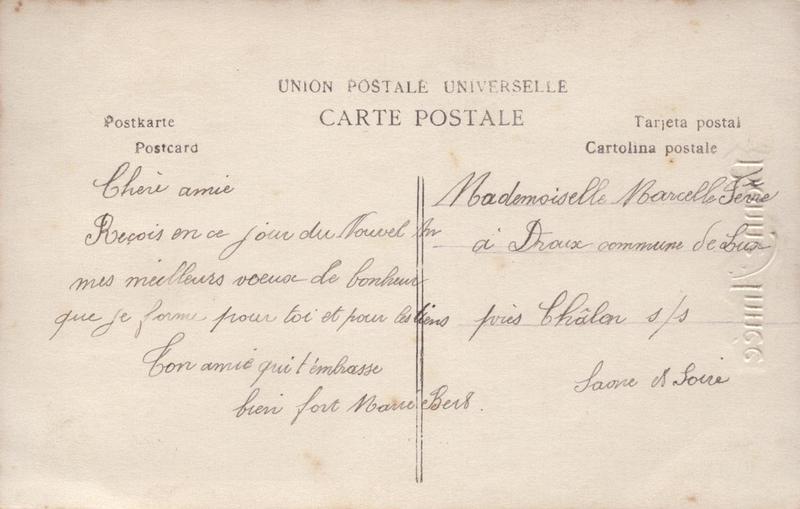 UNION POSTALE UNIVERSELLE
CARTE POSTALE
Postkarte
Postcard
Tarjeta postal
Cartolina postale
Chère amie
Reçois en ce jour du Nouvel An
mes meilleurs voeux de bonheur
que je forme pour toi et pour les tiens
Ton amie qui t'embrasse
bien fort Marie
Mademoiselle Marcelle
à Droux commune de Lux
près Châlon s/s
Saone et Loire